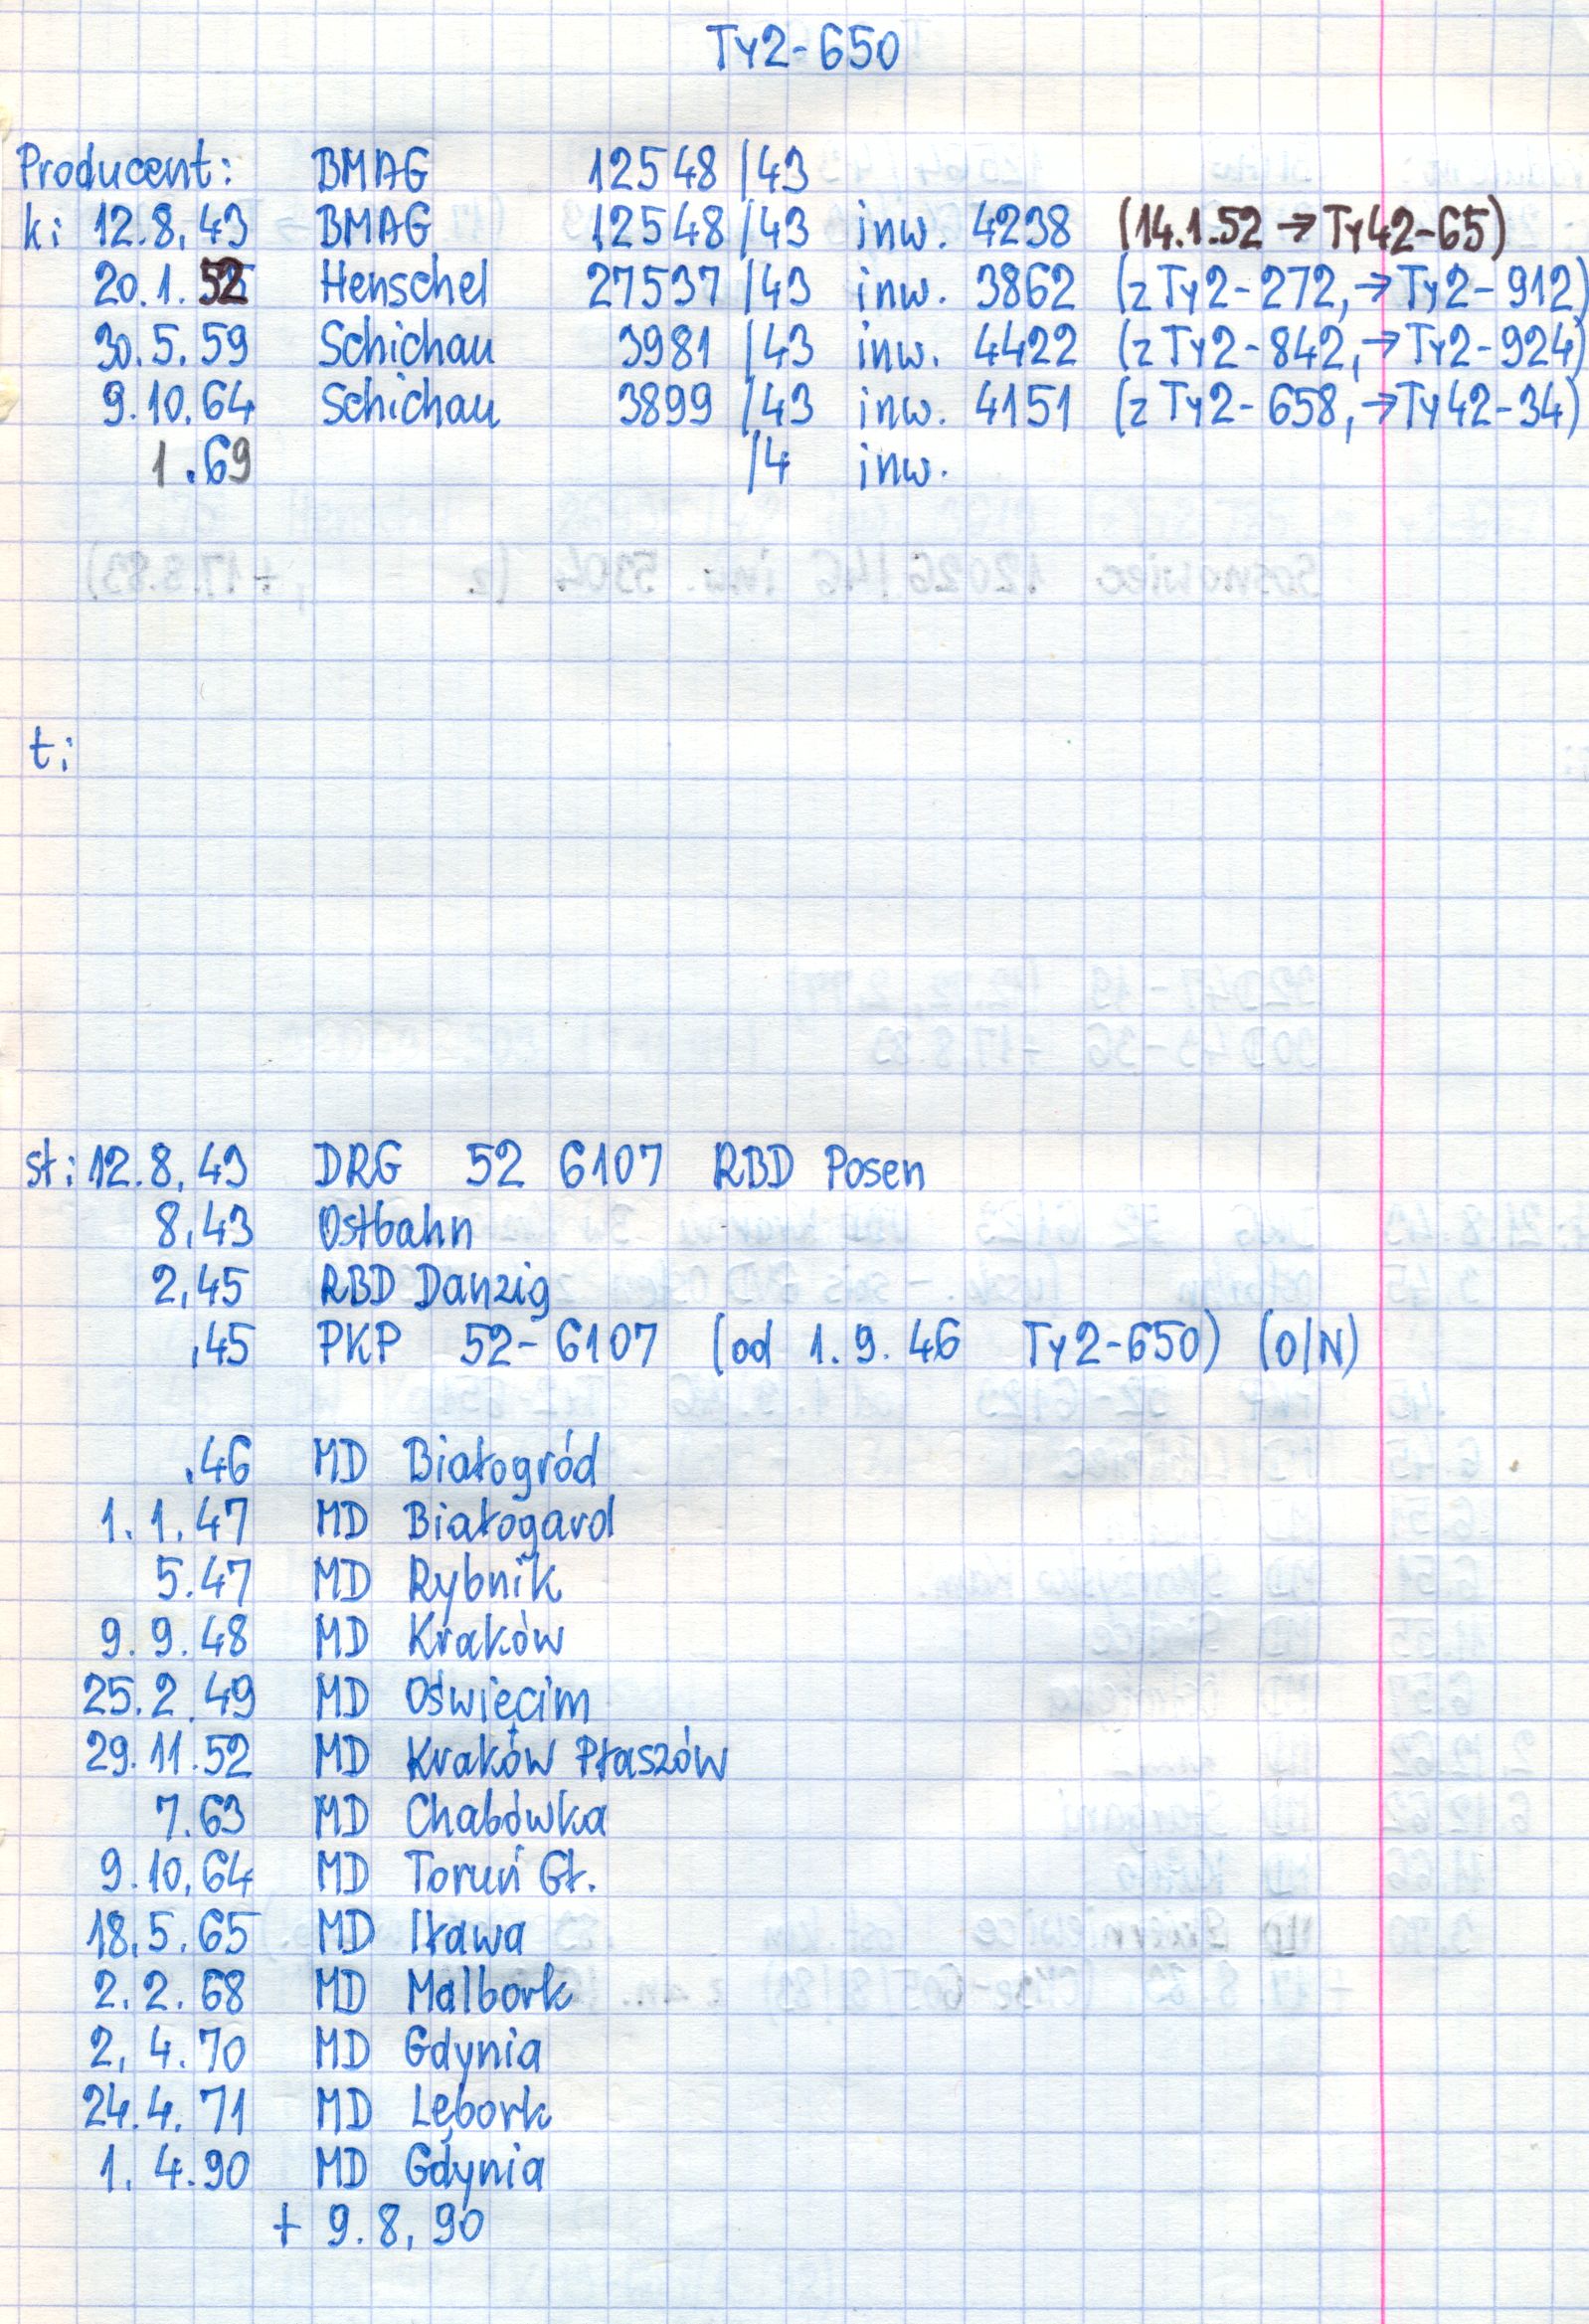 Ty2-650
Producent: BMAG 12548 /43
k: 12.8.43 BMAG 12548 /43 inw. 4238 (14.1.52 → Ty42-65)
20.1.52 Henschel 27537 /43 inw. 3862 (z Ty2-272, → Ty2-912)
30.5.59 Schichau 3981 /43 inw. 4422 (z Ty2-842, → Ty2-924)
9.10.64 Schichau 3899 /43 inw. 4151 (z Ty2-658, → Ty42-34)
1.69 /4 inw.
t:
st: 12.8.43 DRG 52 6107 RBD Posen
8.43 Ostbahn
2.45 RBD Danzig
.45 PKP 52-6107 (od 1.9.46 Ty2-650) (O/N)
.46 MD Białogród
1.1.47 MD Białogard
5.47 MD Rybnik
9.9.48 MD Kraków
25.2.49 MD Oświęcim
29.11.52 MD Kraków Płaszów
7.63 MD Chabówka
9.10.64 MD Toruń Gł.
18.5.65 MD Iława
2.2.68 MD Malbork
2.4.70 MD Gdynia
24.4.71 MD Lębork
1.4.90 MD Gdynia
+ 9.8.90